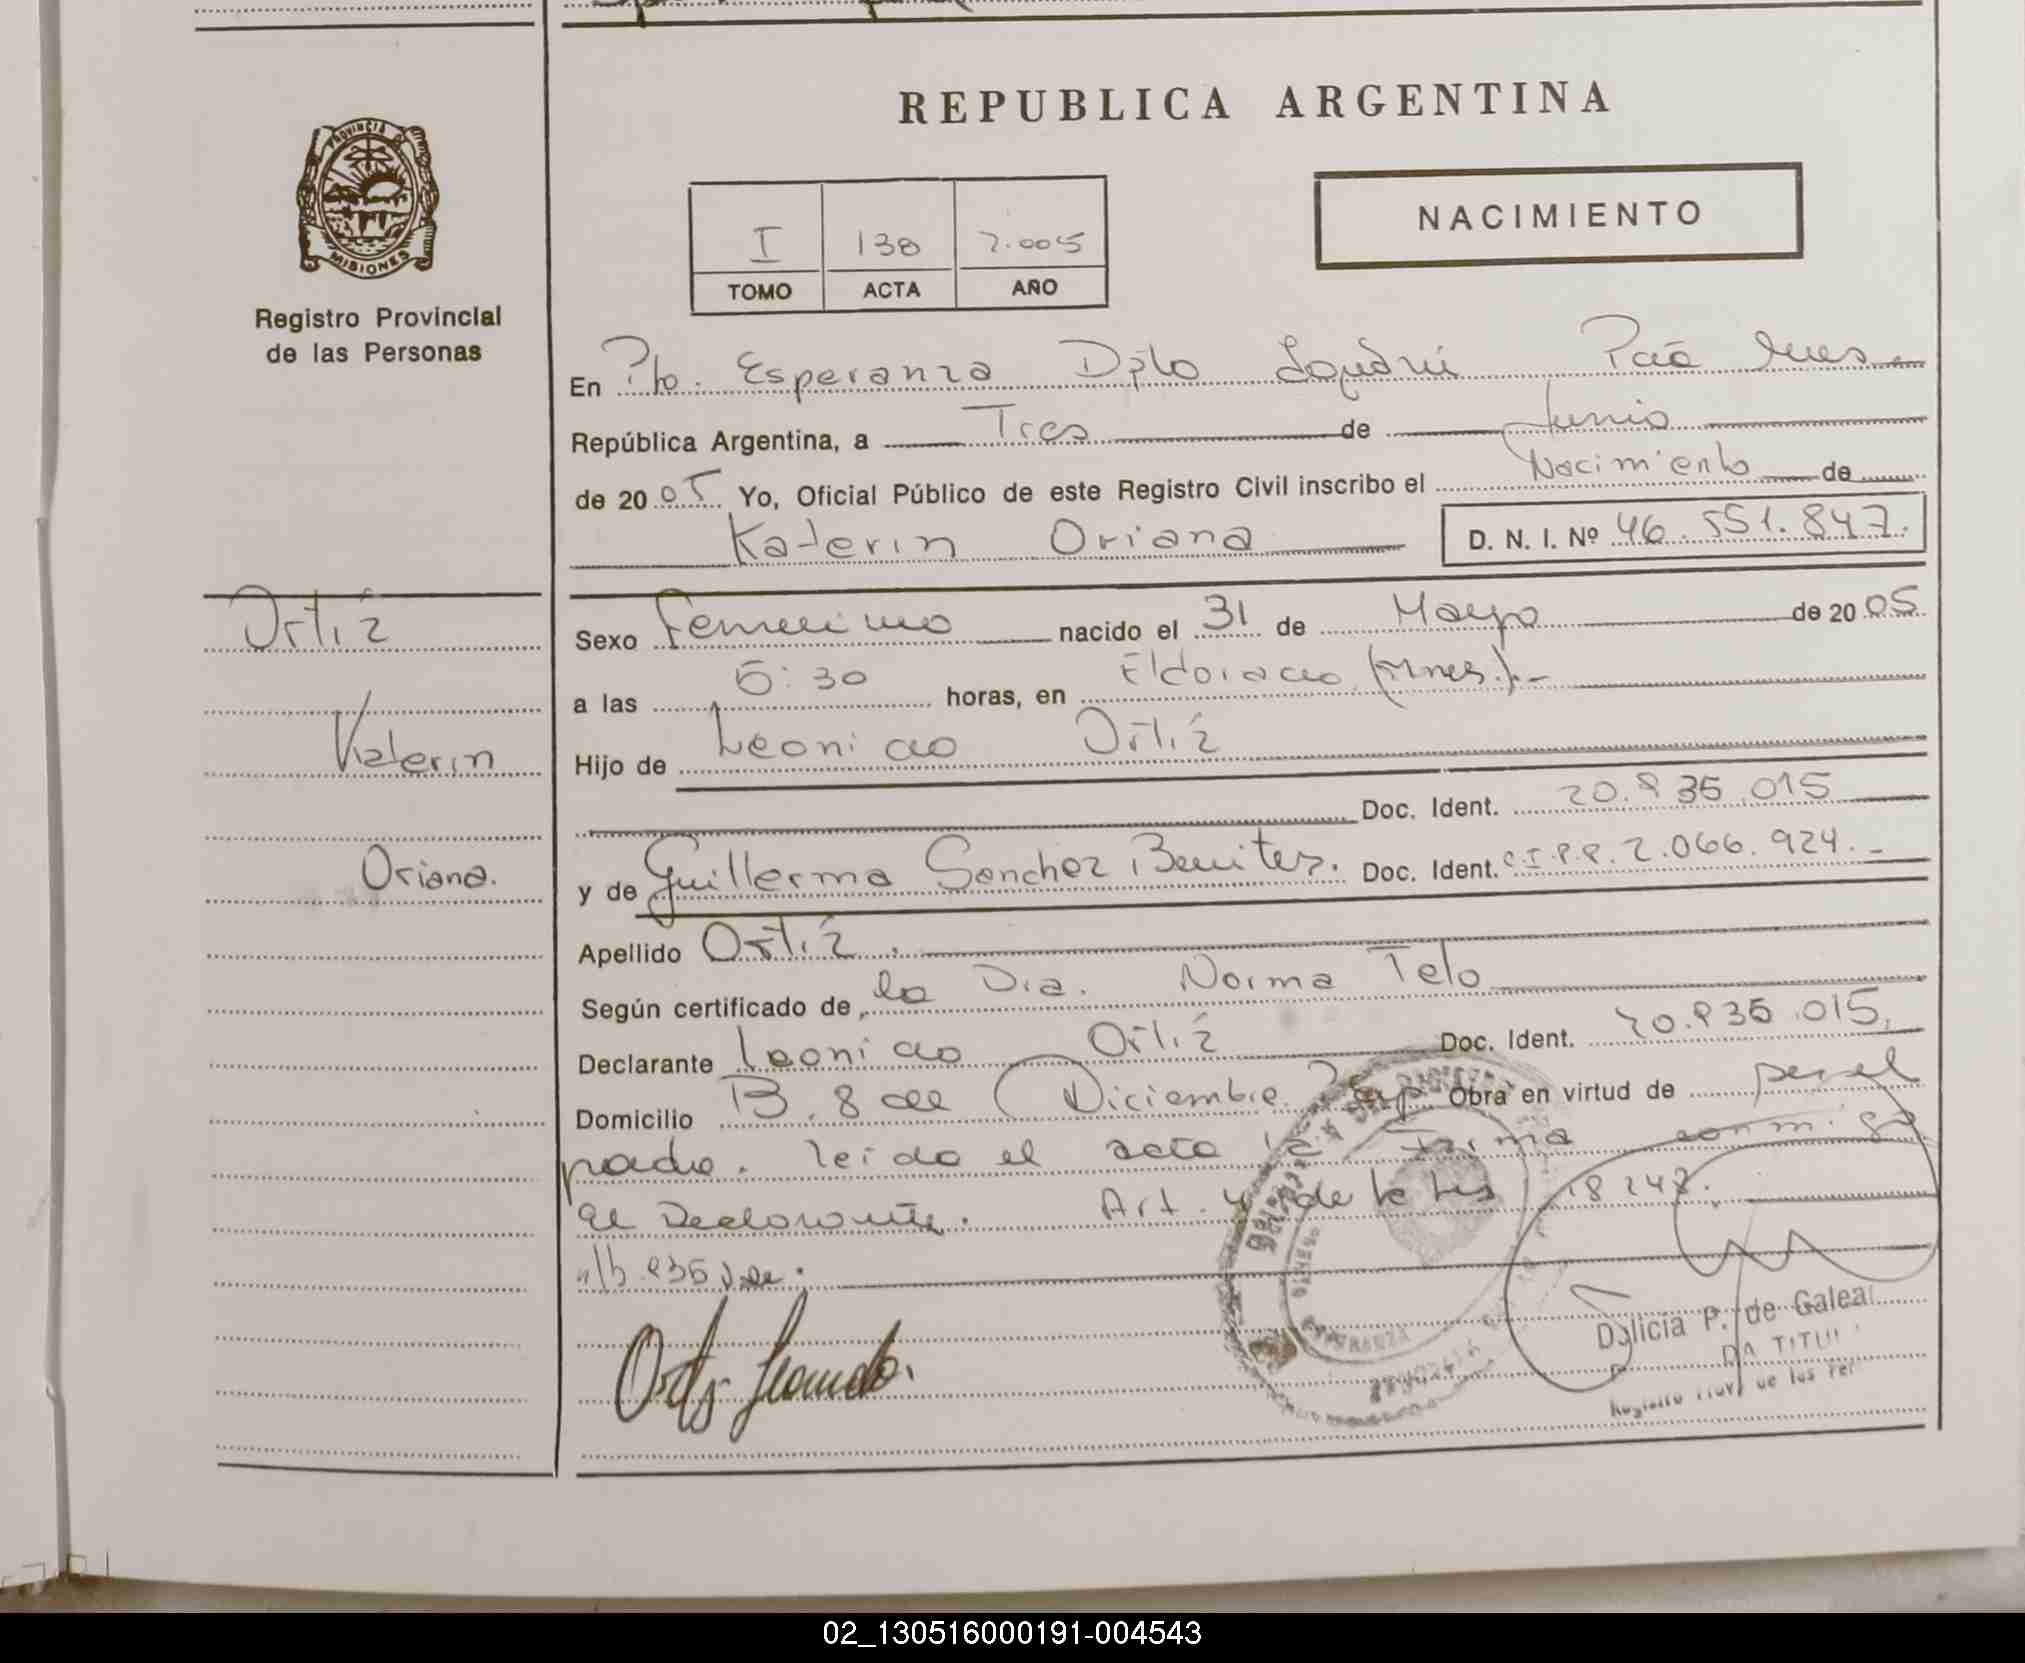 REPUBLICA ARGENTINA
PROVINCIA DE
MISIONES
Registro Provincial
de las Personas
I 138 2.005
TOMO ACTA AÑO
NACIMIENTO
En Pto. Esperanza Dpto Iguazú Pcia Mnes
República Argentina, a Tres de Junio
de 2005 Yo, Oficial Público de este Registro Civil inscribo el Nacimiento de
Katerin Oriana D. N. I. Nº 46.551.847.
Ortíz
Katerin
Oriana.
Sexo Femenino nacido el 31 de Mayo de 2005
a las 6:30 horas, en Eldorado (Mnes).-
Hijo de Leonido Ortíz
Doc. Ident. 20.835.015
y de Guillerma Sanchez Benitez. Doc. Ident. C.I.P.P. 2.066.924.-
Apellido Ortíz.
Según certificado de la Dra. Norma Telo
Declarante Leonido Ortíz Doc. Ident. 20.835.015.
Domicilio B. 8 de Diciembre Esp Obra en virtud de ser el
padre. leido el acta la Firma conmigo
el Declarante. Art. 4 de la Ley 18248.
Ortiz Leonido.
Delicia P. de Galea
DA TITU
ESPERANZA
02_130516000191-004543